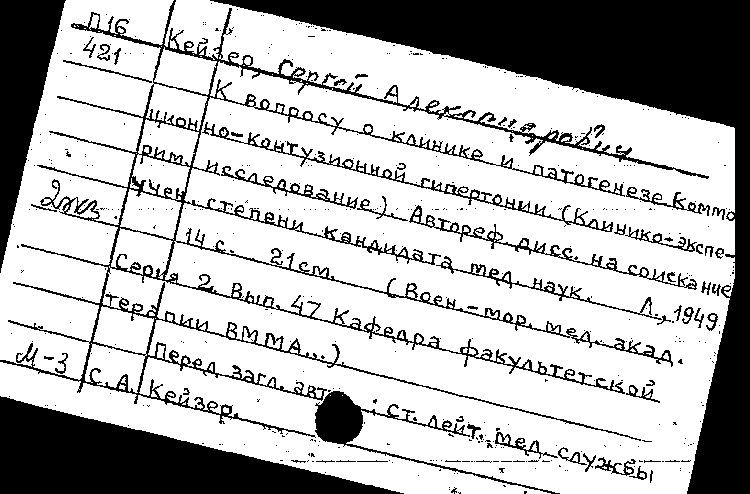 П16 Кейзер, Сергей Александрович
421 К вопросу о клинике и патогенезе коммо
ционно-контузионной гипертонии. (Клинико-экспе-
рим. исследование). Автореф. дисс. на соискание
2экз. учен. степени кандидата мед. наук. Л., 1949.
14 с. 21 см. (Воен.-мор. мед. акад.
Серия 2. Вып. 47 Кафедра факультетской
терапии ВММА...).
Перед загл. авт.: Ст. лейт. мед. службы
М-3 С.А. Кейзер.